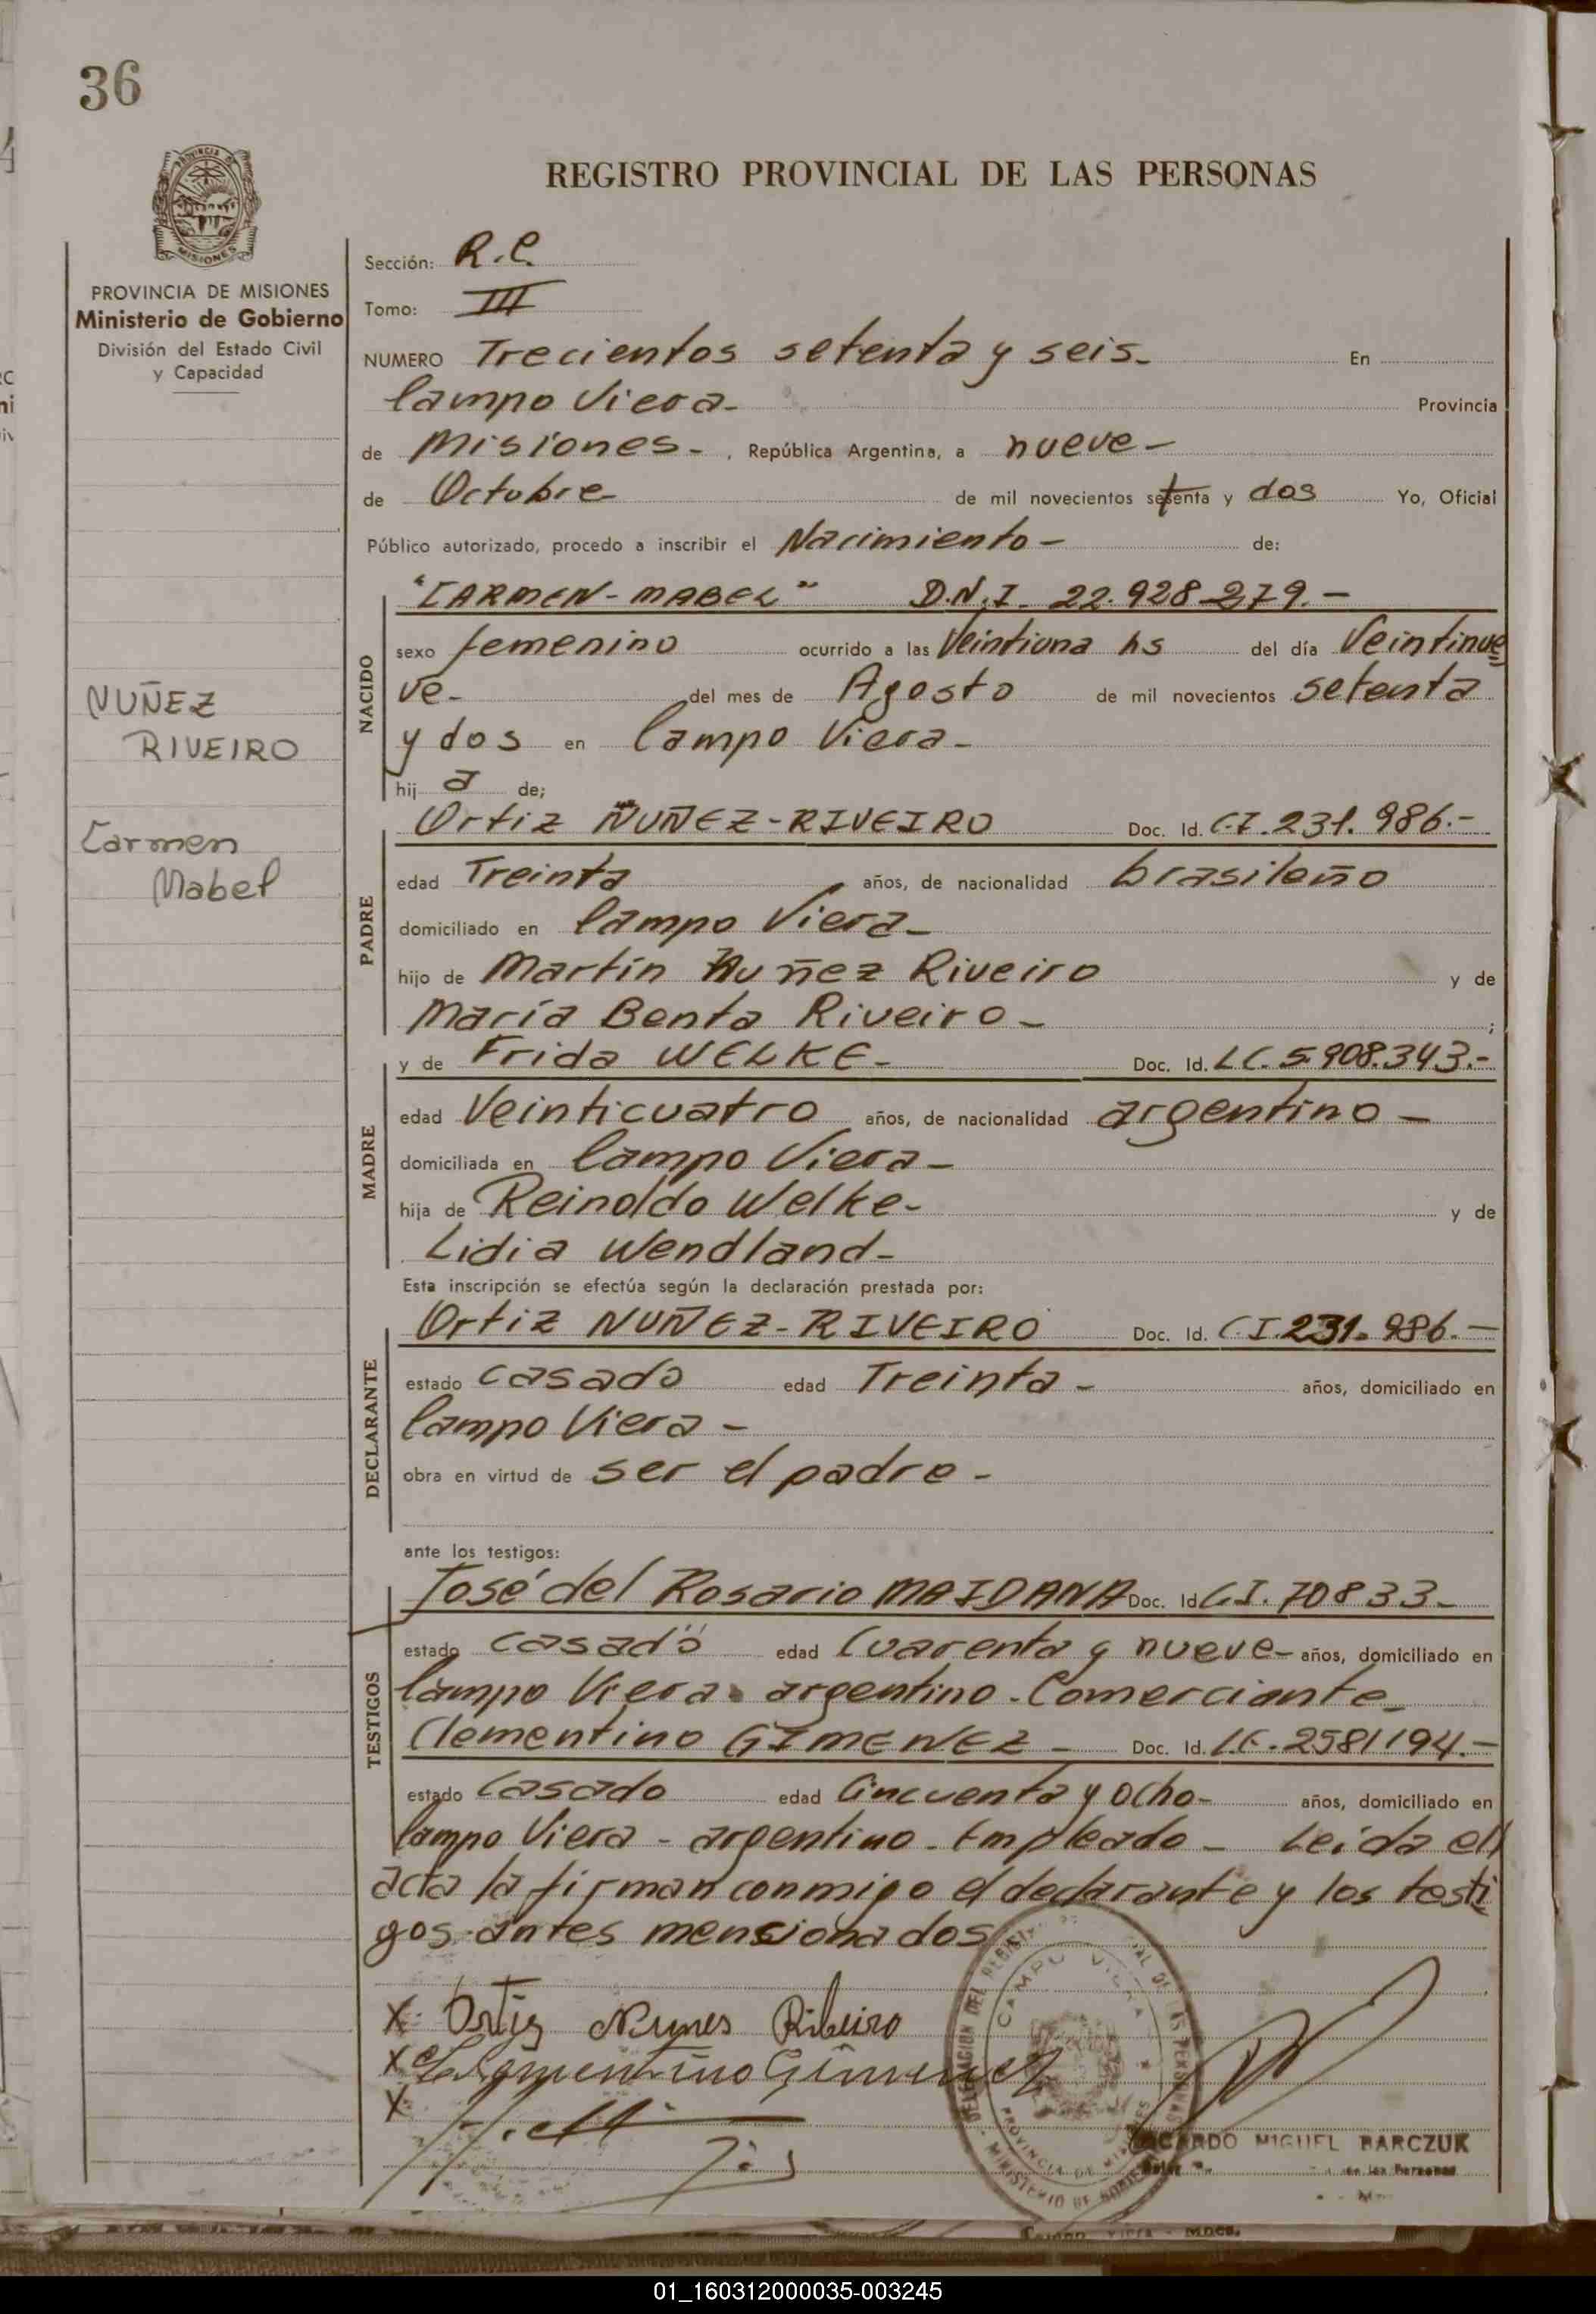 36
REGISTRO PROVINCIAL DE LAS PERSONAS
PROVINCIA DE MISIONES
Ministerio de Gobierno
División del Estado Civil
y Capacidad
NUÑEZ
RIVEIRO
Carmen
Mabel
Sección: R.C.
Tomo: III
NUMERO Trecientos setenta y seis- En
Campo Viera- Provincia
de Misiones- , República Argentina, a nueve-
de Octubre de mil novecientos setenta y dos Yo, Oficial
Público autorizado, procedo a inscribir el Nacimiento- de:
NACIDO
"CARMEN-MABEL" D.N.I. 22.928.279.-
sexo femenino ocurrido a las Veintiuna hs del día Veintinue
ve- del mes de Agosto de mil novecientos setenta
y dos en Campo Viera-
hij a de;
PADRE
Ortiz NUÑEZ-RIVEIRO Doc. Id. C.I. 231.986.-
edad Treinta años, de nacionalidad brasileño
domiciliado en Campo Viera-
hijo de Martín Nuñez Riveiro y de
María Benta Riveiro- ;
MADRE
y de Frida WELKE- Doc. Id. L.C. 5.908.343.-
edad Veinticuatro años, de nacionalidad argentino-
domiciliada en Campo Viera-
hija de Reinoldo Welke- y de
Lidia Wendland-
Esta inscripción se efectúa según la declaración prestada por:
DECLARANTE
Ortiz NUÑEZ-RIVEIRO Doc. Id. C.I. 231.986.-
estado casado edad Treinta- años, domiciliado en
Campo Viera-
obra en virtud de ser el padre-
ante los testigos:
TESTIGOS
José del Rosario MAIDANA Doc. Id C.I. 70833-
estado casado edad Cuarenta y nueve- años, domiciliado en
Campo Viera. argentino. Comerciante-
Clementino GIMENEZ- Doc. Id. L.E. 2581194.-
estado Casado edad Cincuenta y ocho- años, domiciliado en
Campo Viera- argentino. Empleado- Leida el
acta la firman conmigo el declarante y los testi
gos antes mensionados
X Ortiz Nunes Ribeiro
X Clementino Gimenez
X
CAMPO VIERA
PROVINCIA DE MISIONES
MIGUEL BARCZUK
Campo Viera - Mnes.
01_160312000035-003245